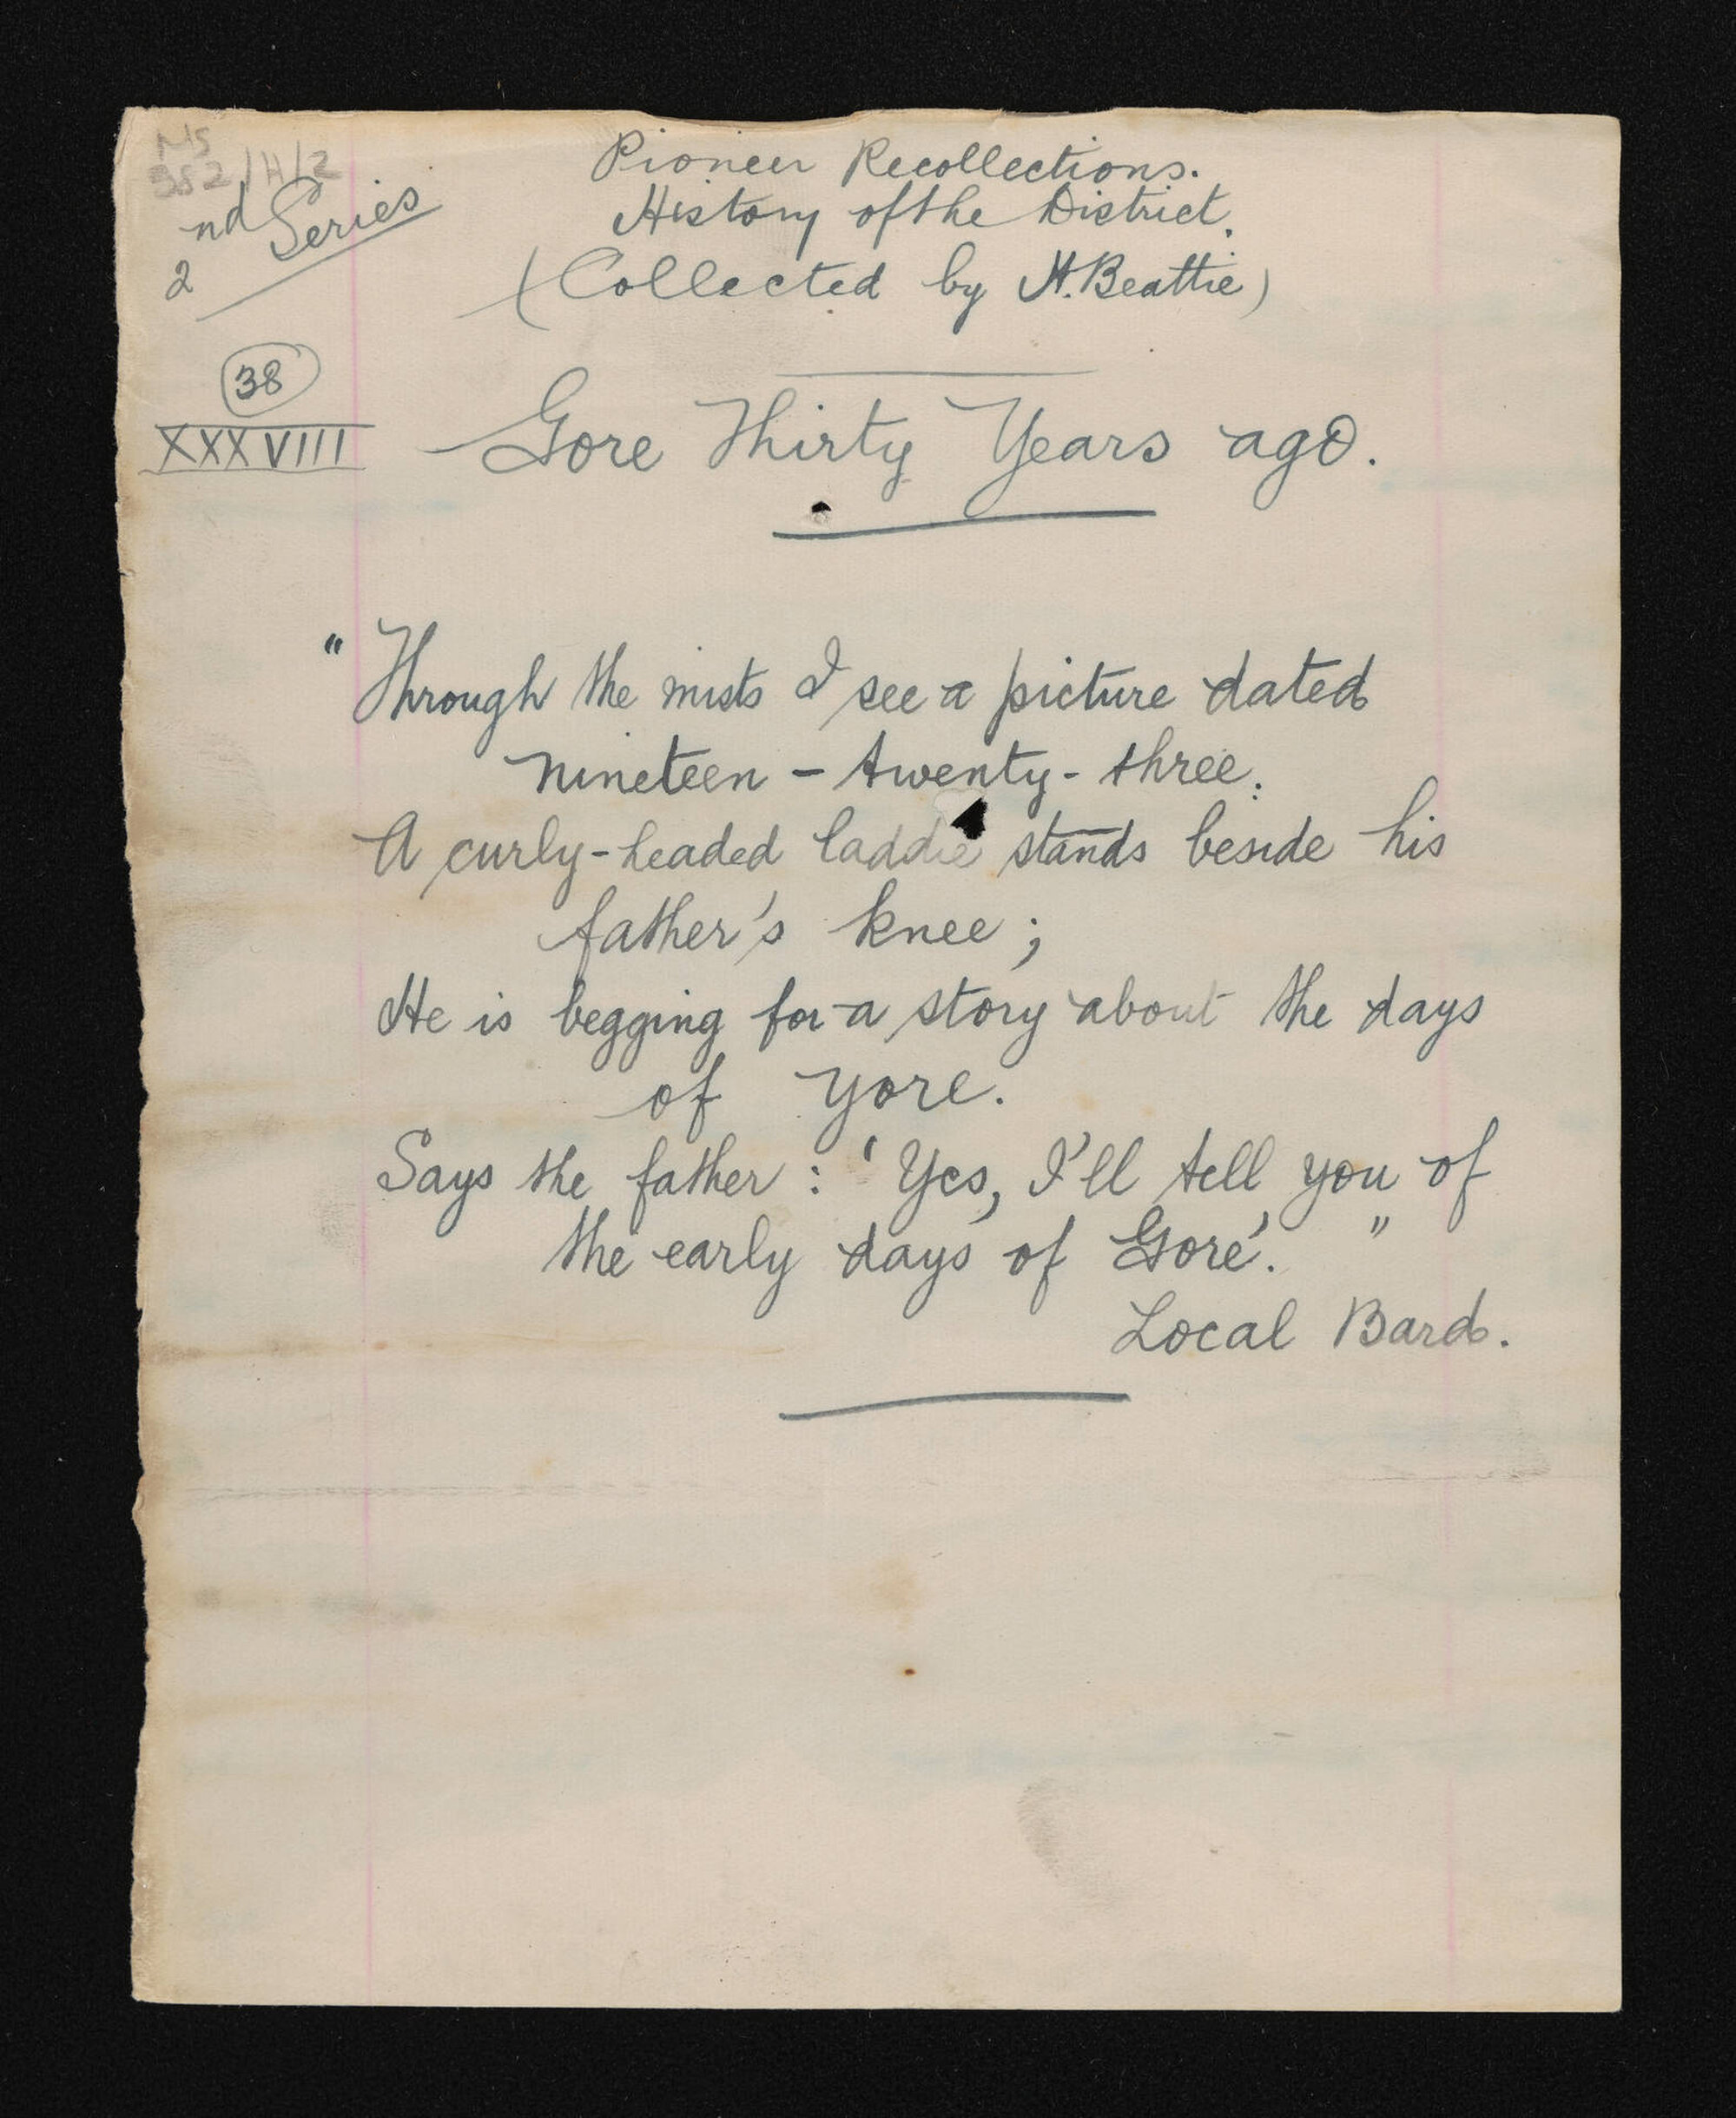 MS
582/H/2
2nd Series
Pioneer Recollections.
History of the District.
(Collected by H. Beattie)
38
XXXVIII
Gore Thirty Years ago.
"Through the mists I see a picture dated
nineteen - twenty - three:
A curly-headed laddie stands beside his
father's knee;
He is begging for a story about the days
of yore.
Says the father: 'Yes, I'll tell you of
the early days of Gore'. "
Local Bard.